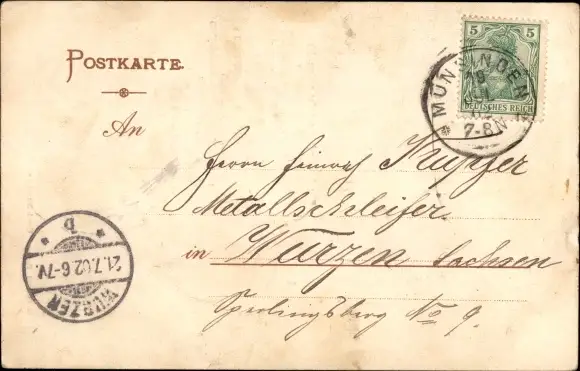 POSTKARTE
5 5
DEUTSCHES REICH
MÜNSINGEN
19
7-8N
An
Herrn Heinrich Kupfer
Metallschleifer
in Wurzen Sachsen
Sperlingsberg No 9.
WURZEN
21.7.02 6-7N.
b